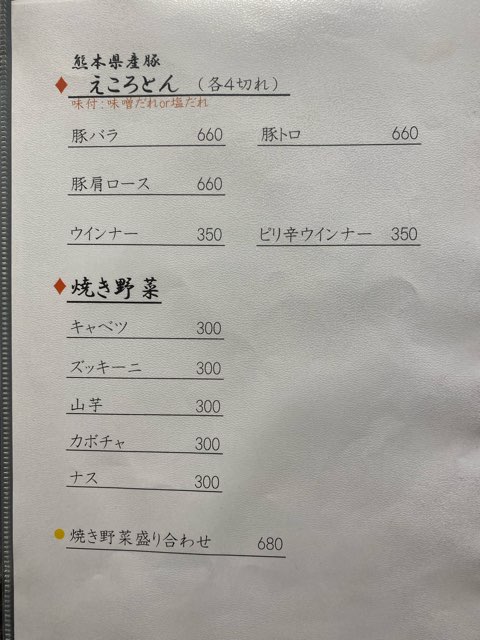 熊本県産豚
♦ えころとん （各4切れ）
味付：味噌だれor塩だれ
豚バラ 660 豚トロ 660
豚肩ロース 660
ウインナー 350 ピリ辛ウインナー 350
♦ 焼き野菜
キャベツ 300
ズッキーニ 300
山芋 300
カボチャ 300
ナス 300
● 焼き野菜盛り合わせ 680